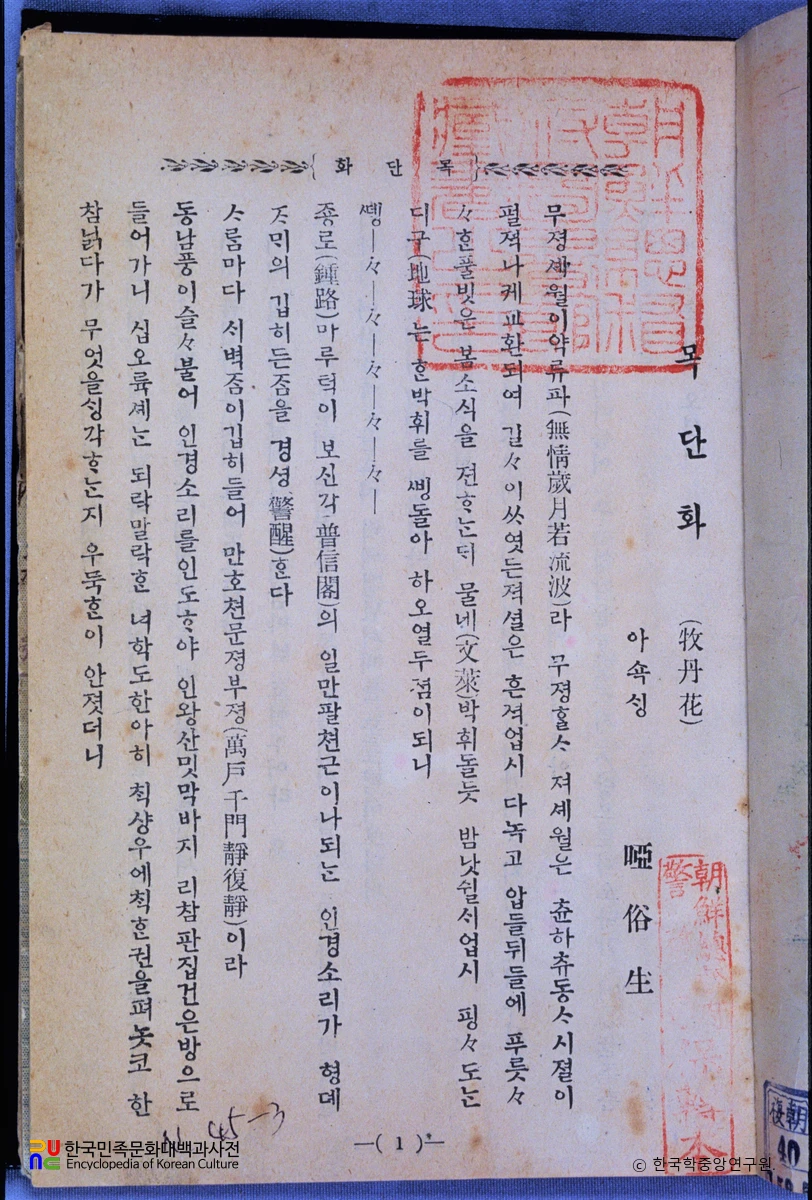 목단화
목단화 (牧丹花)
아속싱 啞俗生
무졍셰월이약류파(無情歲月若流波)라 무졍ᄒᆞᆯᄉᆞ 져셰월은 츈하츄동ᄉᆞ시졀이
펄젹나게교환되여 길々이쓰엿든젹셜은 흔젹업시 다녹고 압들뒤들에 푸릇々
々ᄒᆞᆫ풀빗은 봄소식을 젼ᄒᆞᄂᆞᆫᄃᆡ 물네(文萊)박휘돌듯 밤낫쉴ᄉᆡ업시 핑々도ᄂᆞᆫ
디구(地球)ᄂᆞᆫ ᄒᆞᆫ박휘를 ᄲᅵᆼ돌아 하오열두졈이되니
ᄯᅦᆼ―々―々―々―々―
죵로(鍾路)마루턱이 보신각(普信閣)의 일만팔쳔근이나되ᄂᆞᆫ 인경소리가 형뎨
ᄌᆞᄆᆡ의 깁히든잠을 경셩(警醒)ᄒᆞᆫ다
ᄉᆞ름마다 ᄉᆡ벽잠이깁히들어 만호쳔문졍부졍(萬戶千門靜復靜)이라
동남풍이슬々불어 인경소리를인도ᄒᆞ야 인왕산밋막바지 리참판집건은방으로
들어가니 십오륙셰ᄂᆞᆫ 되락말락ᄒᆞᆫ 녀학도한아히 ᄎᆡᆨ샹우에ᄎᆡᆨᄒᆞᆫ권을펴놋코 한
참낡다가 무엇을ᄉᆡᆼ각ᄒᆞᄂᆞᆫ지 우둑ᄒᆞᆫ이 안졋더니
―( 1 )―
45-3
朝鮮總督
朝
40
한국민족문화대백과사전
Encyclopedia of Korean Culture
© 한국학중앙연구원